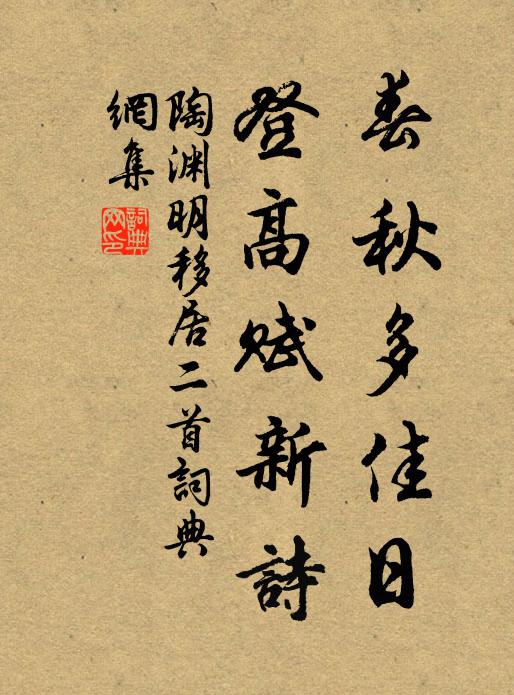 春秋多佳日
登高赋新詩
陶渊明移居二首詞典
網集
詞典
网印